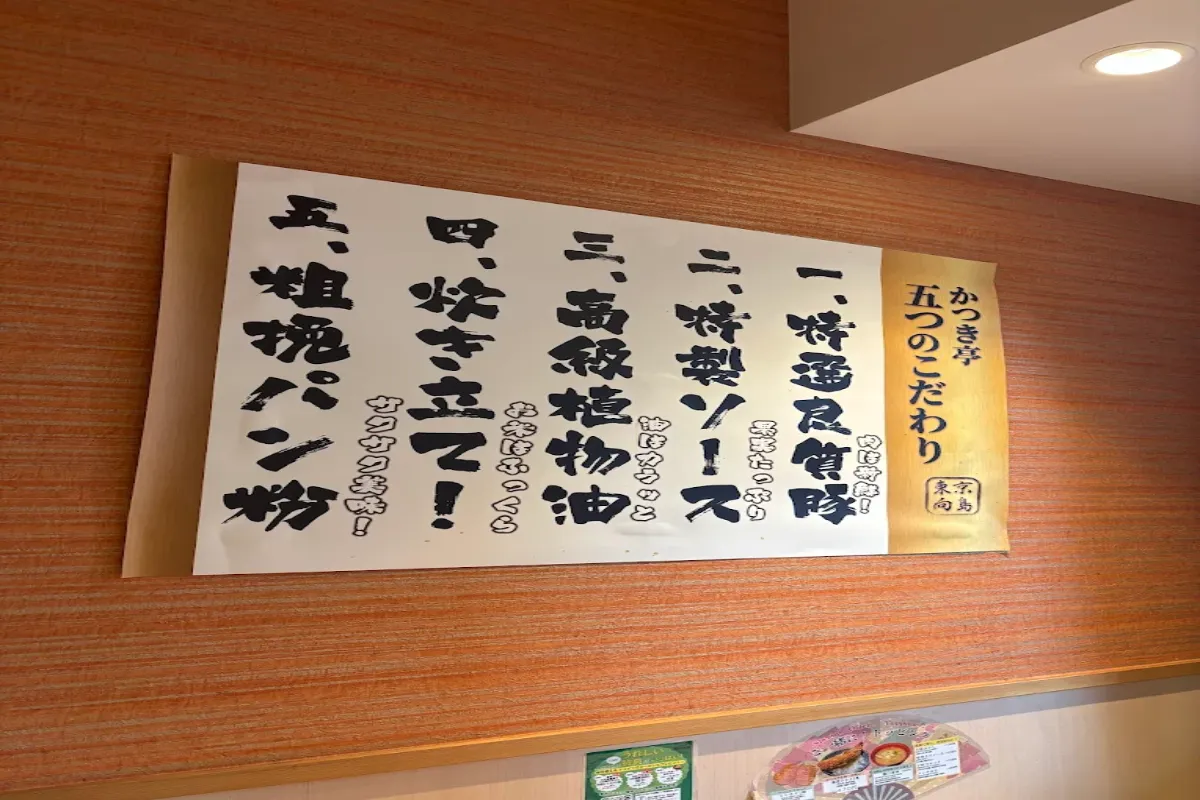 かつき亭
五つのこだわり
東京
向島
一、特選良質豚
肉は新鮮!
二、特製ソース
果実たっぷり
三、高級植物油
油はカラッと
四、炊き立て!
お米はふっくら
五、粗挽パン粉
サクサク美味!
うれしい